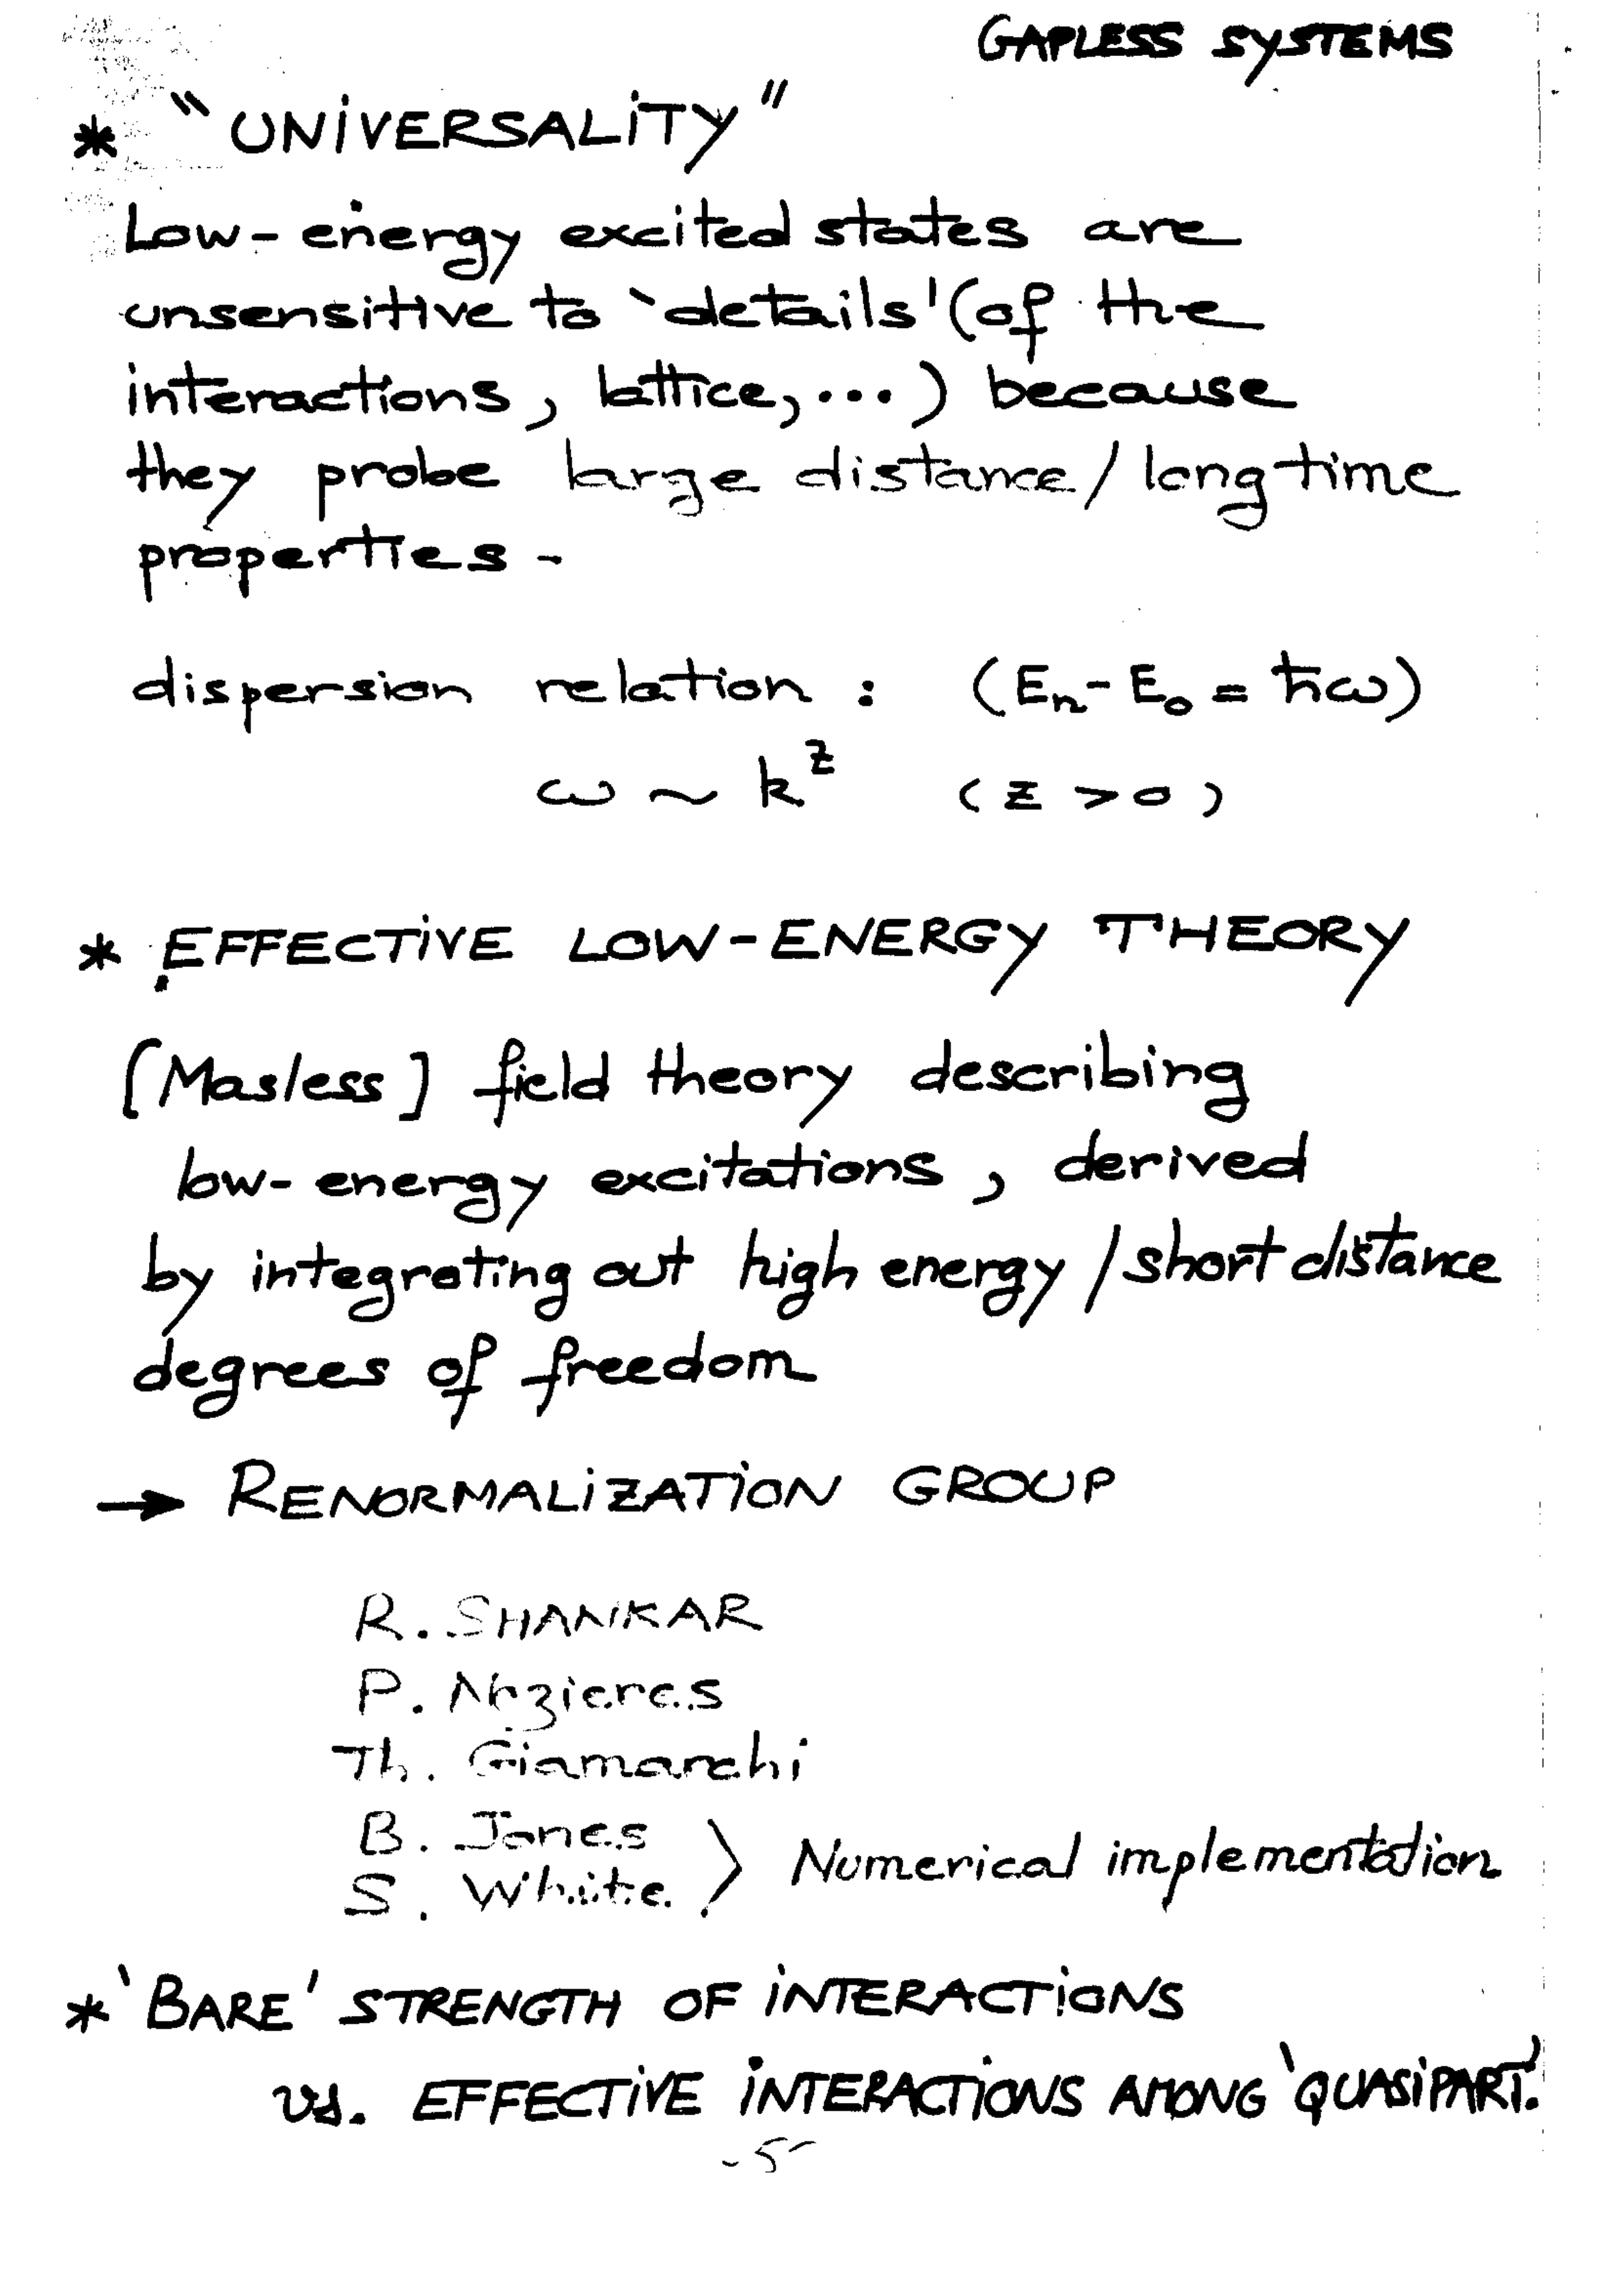 GAPLESS SYSTEMS
* "UNIVERSALITY"
Low-energy excited states are
unsensitive to `details' (of the
interactions, lattice, ...) because
they probe large distance/long time
properties -
dispersion relation : (Eₙ - E₀ = ħω)
ω ~ k^z (z > 0)
* EFFECTIVE LOW-ENERGY THEORY
[Masless] field theory describing
low-energy excitations, derived
by integrating out high energy / short distance
degrees of freedom
→ RENORMALIZATION GROUP
R. SHANKAR
P. Nozieres
Th. Giamarchi
B. Jones
S. White > Numerical implementation
* `BARE' STRENGTH OF INTERACTIONS
vs. EFFECTIVE INTERACTIONS AMONG `QUASIPART.'
-5-